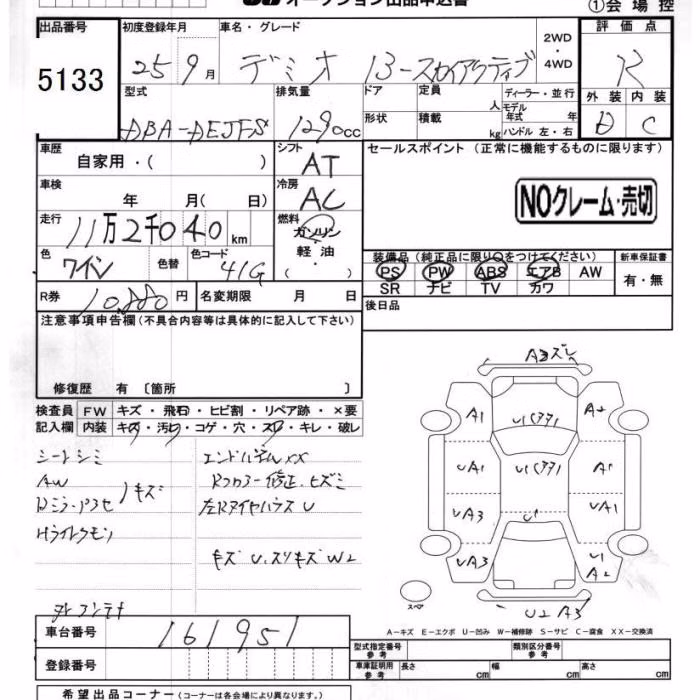 オークション出品申込書
①会場控
出品番号 初度登録年月 車名・グレード 2WD・4WD 評価点
5133 25 9月 デミオ 13-スカイアクティブ R
型式 排気量 ドア 定員 人 ディーラー・並行 外装 内装
DBA-DEJFS 1290cc 形状 積載 kg モデル年式 年 ハンドル 左・右 D C
車歴 自家用・( ) シフト AT セールスポイント (正常に機能するものに限ります)
車検 年 月( 日) 冷房 AC NOクレーム・売切
走行 11万2千040km 燃料 ガソリン・軽油・( )
色 ワイン 色替 色コード 41G
装備品 (純正品に限り○をつけてください) 新車保証書
PS PW ABS エアB AW 有・無
SR ナビ TV カワ
R券 10,880円 名変期限 月 日 後日品
注意事項申告欄 (不具合内容等は具体的に記入して下さい)
修復歴 有 〔箇所 〕
検査員 FW キズ・飛石・ヒビ割・リペア跡・×要
記入欄 内装 キズ・汚レ・コゲ・穴・スレ・キレ・破レ
シートシミ
AW
キズ
エンドパネルXX
左Rタイヤハウス U
キズ U.スリキズ W2
A3キズ
A1 A2
UA1 A1
UA3 U1 UA1
UA3 U1 A2
スペア
U2 A3
A-キズ E-エクボ U-凹み W-補修跡 S-サビ C-腐食 XX-交換済
車台番号 161951
登録番号
型式指定番号 参考 類別区分番号 参考
車庫証明用 参考 長さ cm 幅 cm 高さ cm
希望出品コーナー (コーナーは各会場により異なります。)